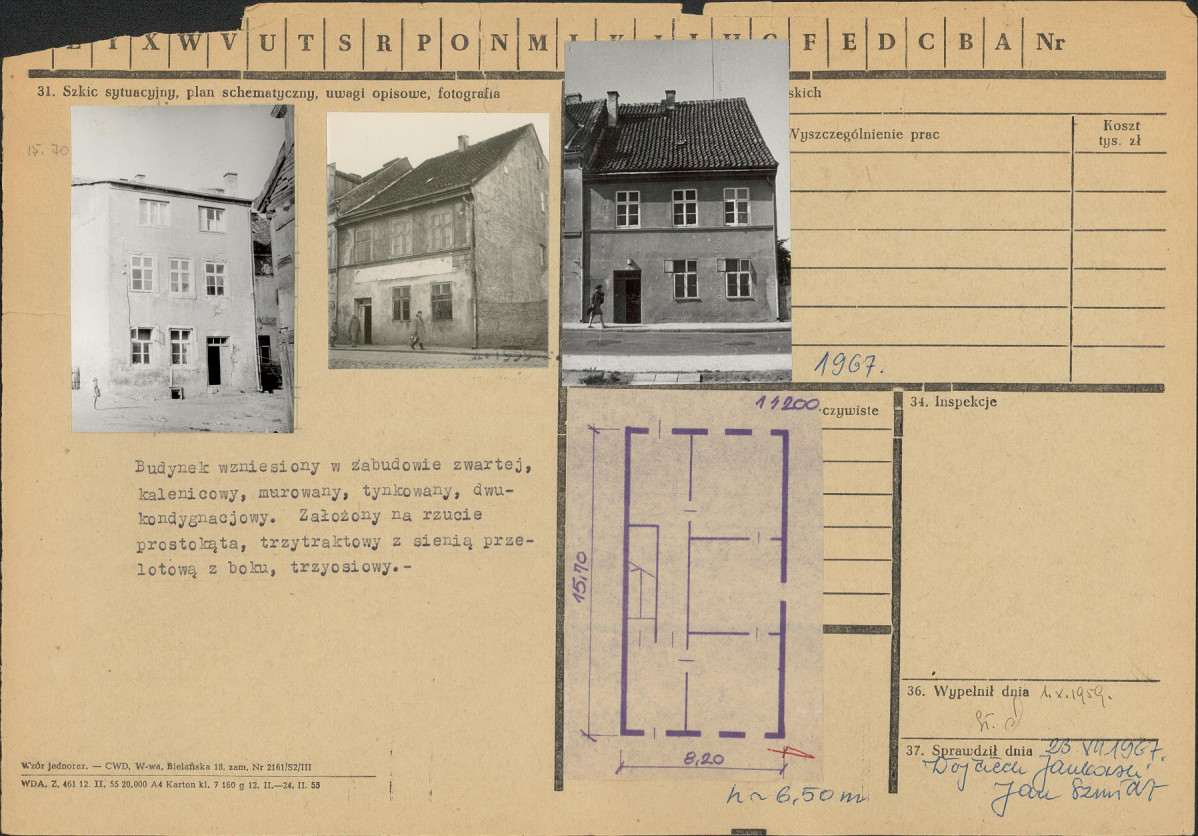 Z Y X W V U T S R P O N M L K J I H G F E D C B A Nr
31. Szkic sytuacyjny, plan schematyczny, uwagi opisowe, fotografia
skich
Wyszczególnienie prac
Koszt
tys. zł
15.70
1967.
1:200
czywiste
34. Inspekcje
Budynek wzniesiony w zabudowie zwartej,
kalenicowy, murowany, tynkowany, dwu-
kondygnacjowy. Założony na rzucie
prostokąta, trzytraktowy z sienią prze-
lotową z boku, trzyosiowy.-
15,70
8,20
h ~ 6,50 m
36. Wypełnił dnia 1.X.1959.
37. Sprawdził dnia 23.VII 1967.
Wojciech Jankowski
Jan Szmidt
Wzór jednoraz. — CWD, W-wa, Bielańska 18, zam. Nr 2161/S2/III
WDA. Z. 461 12. II. 55 20.000 A4 Karton kl. 7 160 g 12. II.—24. II. 55